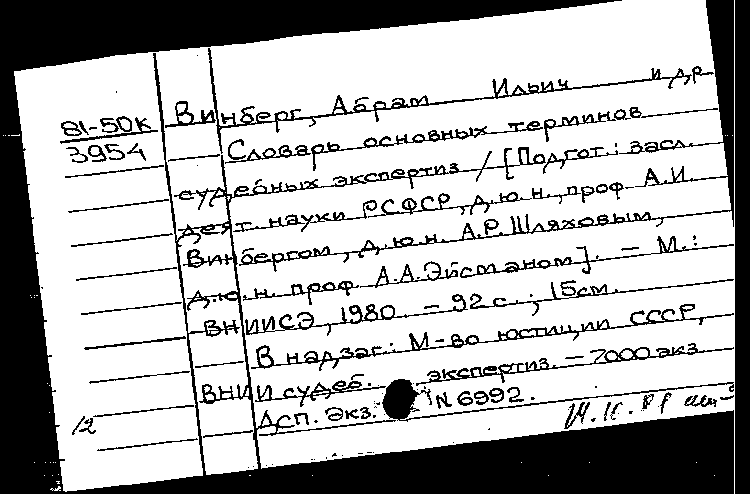 81-50к
3954
Винберг, Абрам Ильич и др
Словарь основных терминов
судебных экспертиз / [Подгот.: засл.
деят. науки РСФСР, д.ю.н., проф А.И.
Винбергом, д.ю.н. А.Р. Шляховым,
д.ю.н. проф А.А. Эйсманом]. — М.:
ВНИИСЭ, 1980. — 92 с.; 15см.
В надзаг.: М-во юстиции СССР,
ВНИИ судеб. экспертиз. — 2000 экз
Дсп. Экз. N 6992.
12